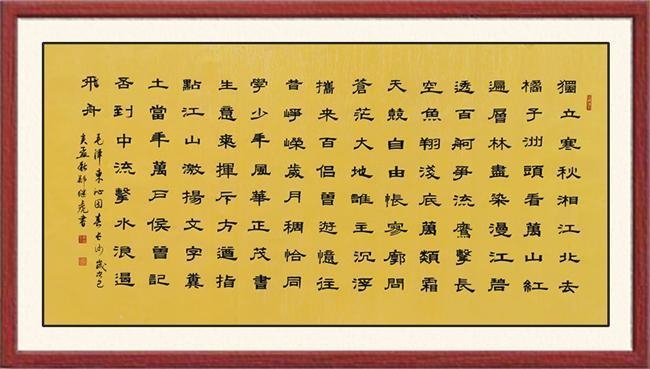 獨立寒秋湘江北去
橘子洲頭看萬山紅
遍層林盡染漫江碧
透百舸爭流鷹擊長
空魚翔淺底萬類霜
天競自由悵寥廓問
蒼茫大地誰主沉浮
攜來百侶曾遊憶往
昔崢嶸歲月稠恰同
學少年風華正茂書
生意氣揮斥方遒指
點江山激揚文字糞
土當年萬戶侯曾記
否到中流擊水浪遏
飛舟
毛澤東沁園春長沙歲次己
亥孟秋鄭虎書